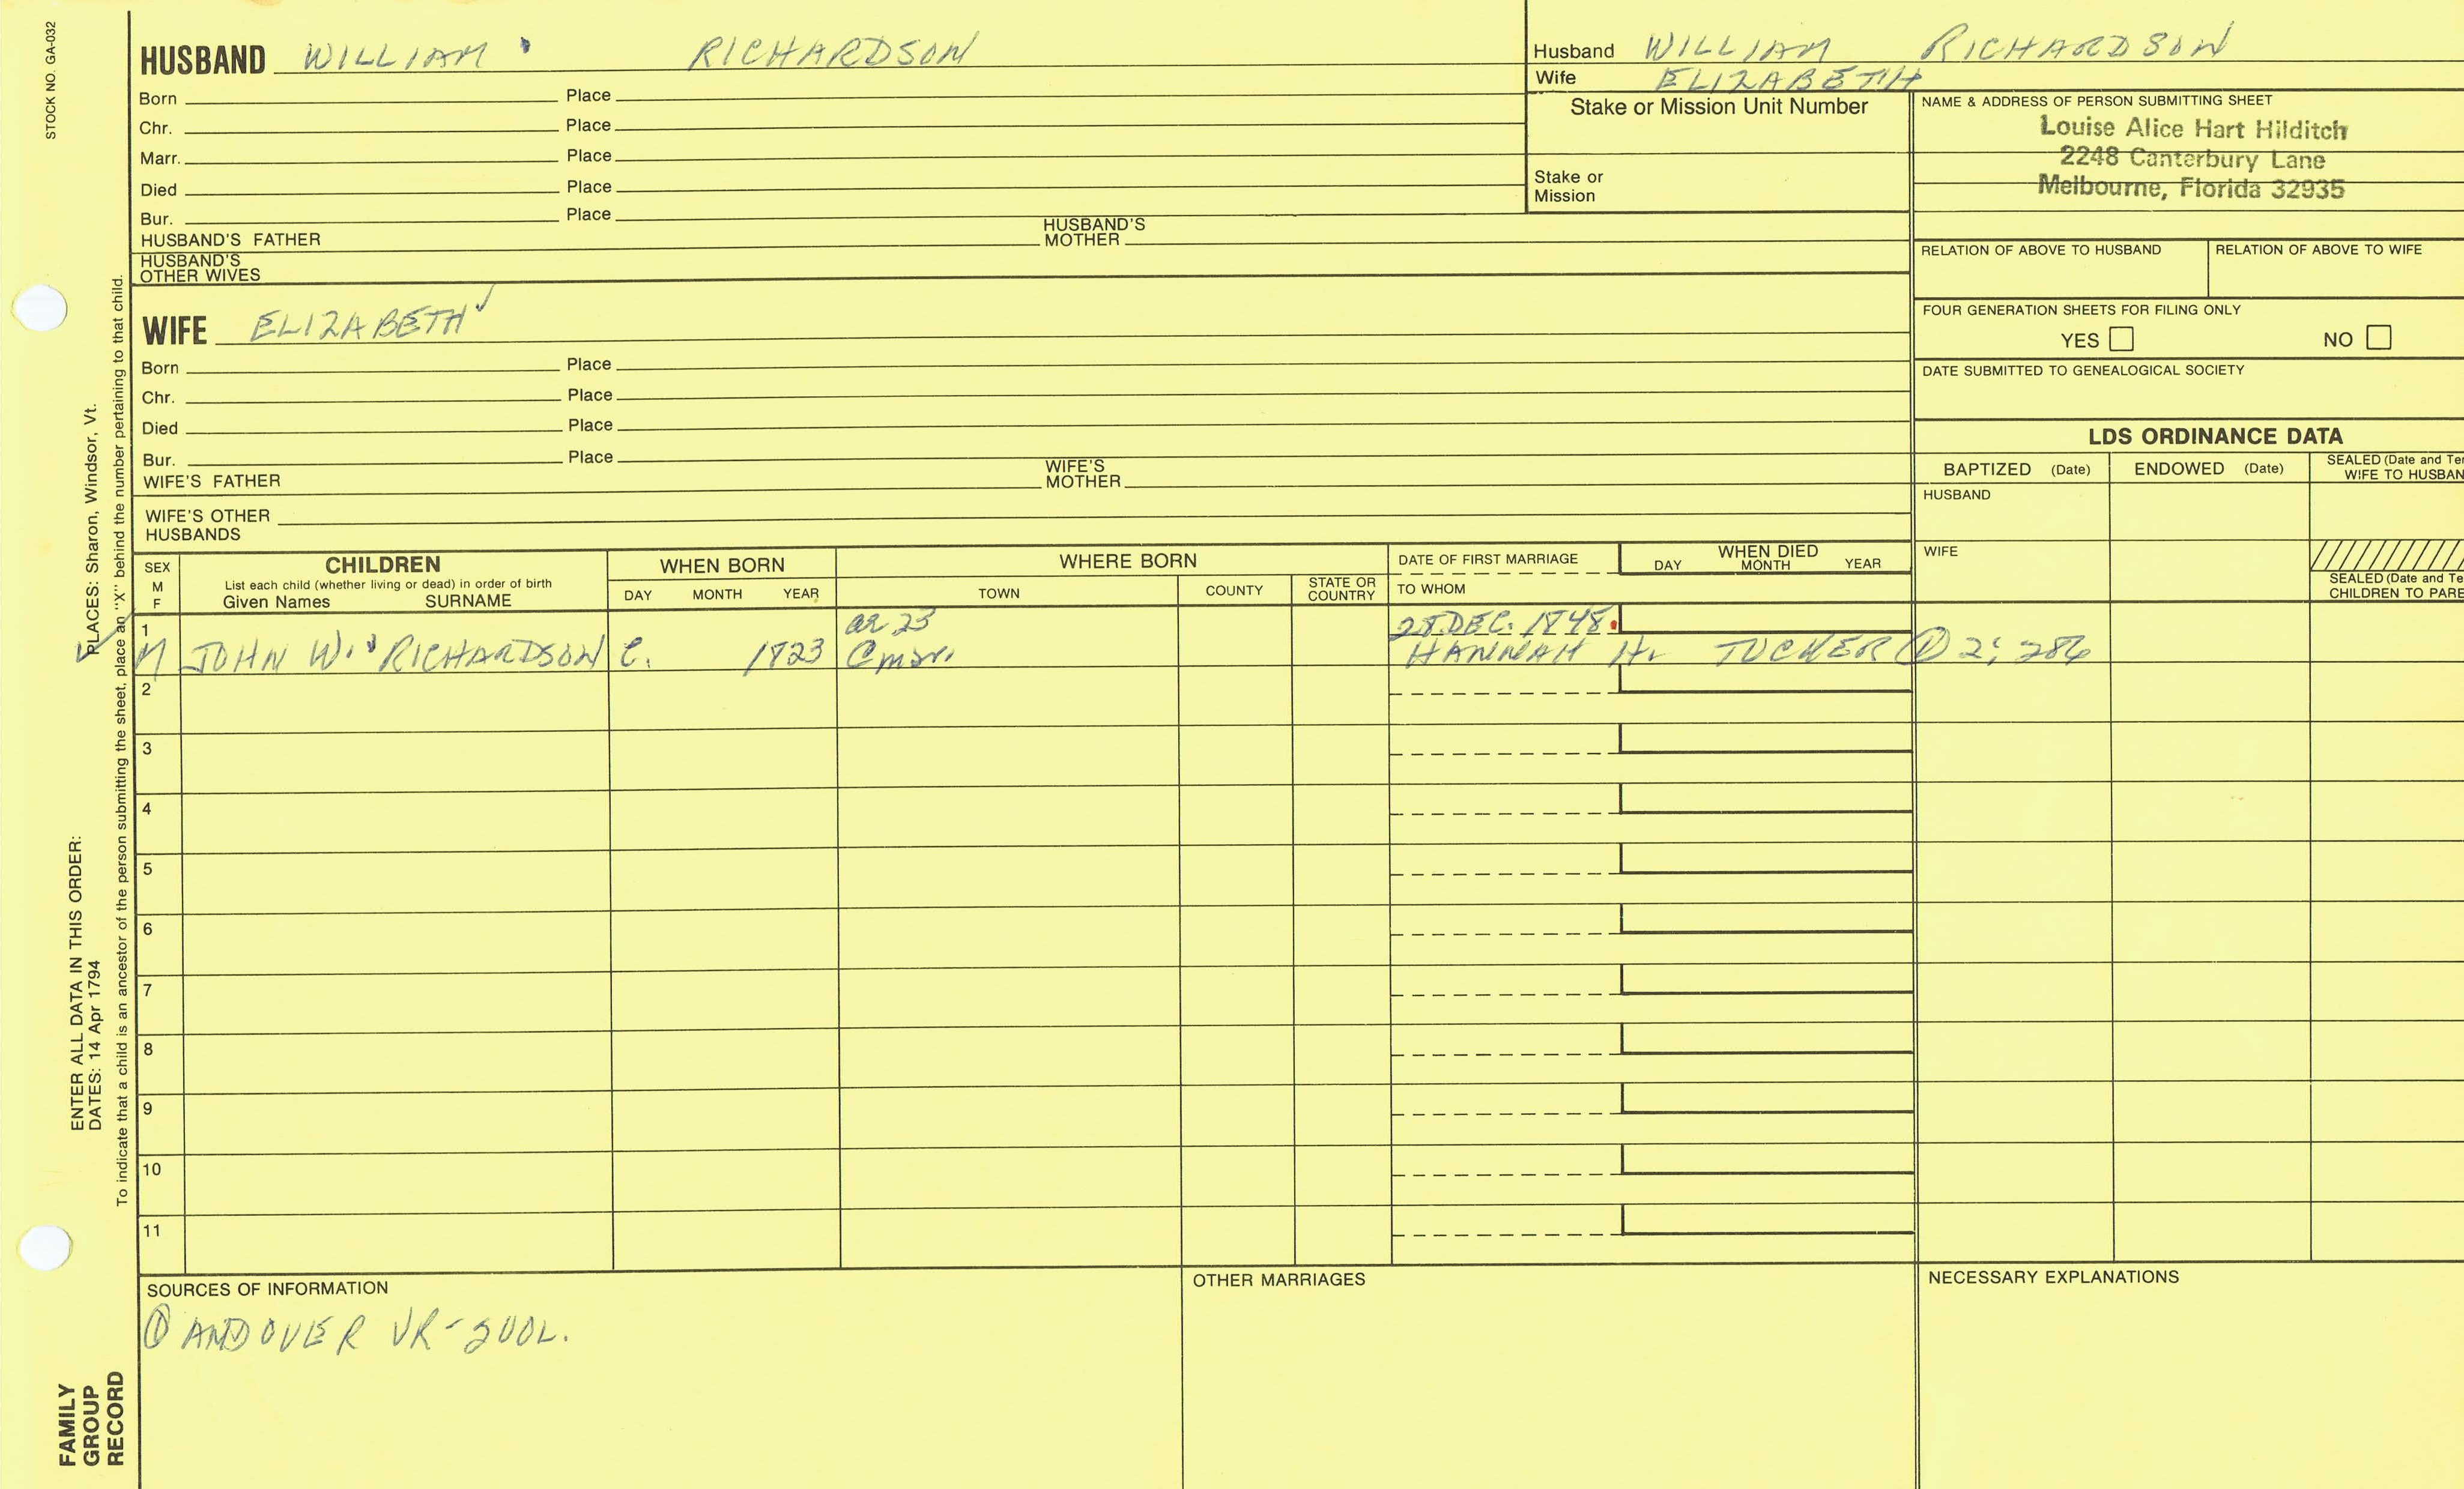 STOCK NO. GA-032
HUSBAND WILLIAM RICHARDSON
Born Place
Chr. Place
Marr. Place
Died Place
Bur. Place
HUSBAND'S FATHER HUSBAND'S MOTHER
HUSBAND'S OTHER WIVES
WIFE ELIZABETH
Born Place
Chr. Place
Died Place
Bur. Place
WIFE'S FATHER WIFE'S MOTHER
WIFE'S OTHER HUSBANDS
Husband WILLIAM RICHARDSON
Wife ELIZABETH
Stake or Mission Unit Number
Stake or Mission
NAME & ADDRESS OF PERSON SUBMITTING SHEET
Louise Alice Hart Hilditch
2248 Canterbury Lane
Melbourne, Florida 32935
RELATION OF ABOVE TO HUSBAND RELATION OF ABOVE TO WIFE
FOUR GENERATION SHEETS FOR FILING ONLY
YES NO
DATE SUBMITTED TO GENEALOGICAL SOCIETY
LDS ORDINANCE DATA
BAPTIZED (Date) ENDOWED (Date) SEALED (Date and Te
WIFE TO HUSBAN
HUSBAND
WIFE
SEALED (Date and Te
CHILDREN TO PARE
SEX M F
CHILDREN
List each child (whether living or dead) in order of birth
Given Names SURNAME
WHEN BORN
DAY MONTH YEAR
WHERE BORN
TOWN COUNTY STATE OR COUNTRY
DATE OF FIRST MARRIAGE
TO WHOM
WHEN DIED
DAY MONTH YEAR
1 28 DEC. 1848.
M JOHN W. RICHARDSON C. 1823 HANNAH H. TUCKER ① 2:286
2
3
4
5
6
7
8
9
10
11
SOURCES OF INFORMATION
① ANDOVER VR-2VOL.
OTHER MARRIAGES
NECESSARY EXPLANATIONS
ENTER ALL DATA IN THIS ORDER:
DATES: 14 Apr 1794 PLACES: Sharon, Windsor, Vt.
To indicate that a child is an ancestor of the person submitting the sheet, place an "X" behind the number pertaining to that child.
FAMILY
GROUP
RECORD